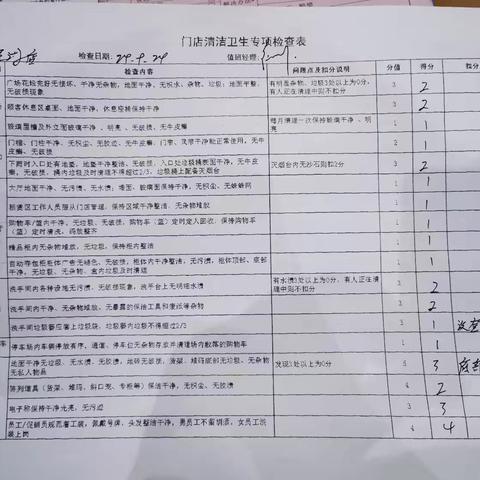 门店清洁卫生专项检查表
检查日期: 24.9.24 值班经理:
检查内容 问题点及扣分说明 分值 得分 扣分
广场花坛完好无损坏、干净无杂物, 地面干净、无积水、杂物、垃圾; 地面平整、
无破损现象 有明显杂物、垃圾3处以上为0分,
有人正在清理中则不扣分 3 2
顾客休息区桌面、地面干净、休息座椅保持干净 3 2
玻璃屋檐及外立面玻璃干净、明亮、无破损、无牛皮癣 每月清理一次保持玻璃干净、明
亮 1 1
门楣、门柱干净、无积尘、无胶迹、无牛皮癣; 门帘、风帘干净能正常使用, 无牛
皮癣 2 1
下雨时入口处有地垫, 地垫干净整洁、无破损, 入口处垃圾桶表面干净, 无牛皮
癣, 无破损, 桶内垃圾及时清理不得超过2/3, 垃圾桶上配备灭烟台 灭烟台内无沙石则扣2分 3 2
大厅地面干净、无污渍、无水渍; 墙面、玻璃面保持干净, 无积尘、无蜘蛛网 1 1
租赁区工作人员服从门店管理, 保持区域干净整洁、无杂物堆放 1 1
购物车/篮内干净, 无垃圾、无破损, 购物车(篮)定时定人回收, 保持购物车
(篮)定时清洗、码放整齐 1 1
精品柜内无杂物堆放, 无垃圾, 保持柜内整洁 1 1
自动存包柜柜体广告无褪色、无破损, 柜体内干净整洁, 无污渍, 柜体顶部、底部
干净, 无垃圾、无杂物, 盒内垃圾及时清理 1 1
洗手间内各种设施无污渍、无破损现象, 洗手台上无明细水渍 有水渍3处以上为0分, 有人正在清
理中则不扣分 3 2
洗手间内干净、无杂物堆放, 无暴露的保洁工具和废纸等杂物 3 2
洗手间垃圾篓应套上垃圾袋, 垃圾篓内垃圾不得超过2/3 3 1
停车场内车辆停放有序, 通道、停车位无杂物存放并清理场内散落的购物车 1 1
地面干净无垃圾、无水渍、无胶渍, 地砖无破损, 货架、堆码底部无垃圾、无杂物
无名人物品 发现3处以上为0分 5 3
陈列道具(货架、堆码、斜口笼、专柜等)保洁干净, 无积尘、无胶渍 4 2
电子称保持干净光亮, 无污迹 3 3
员工/促销员规范着工装, 佩戴号牌、头发整洁干净, 男员工不留胡渣, 女员工淡
装上岗 4 4